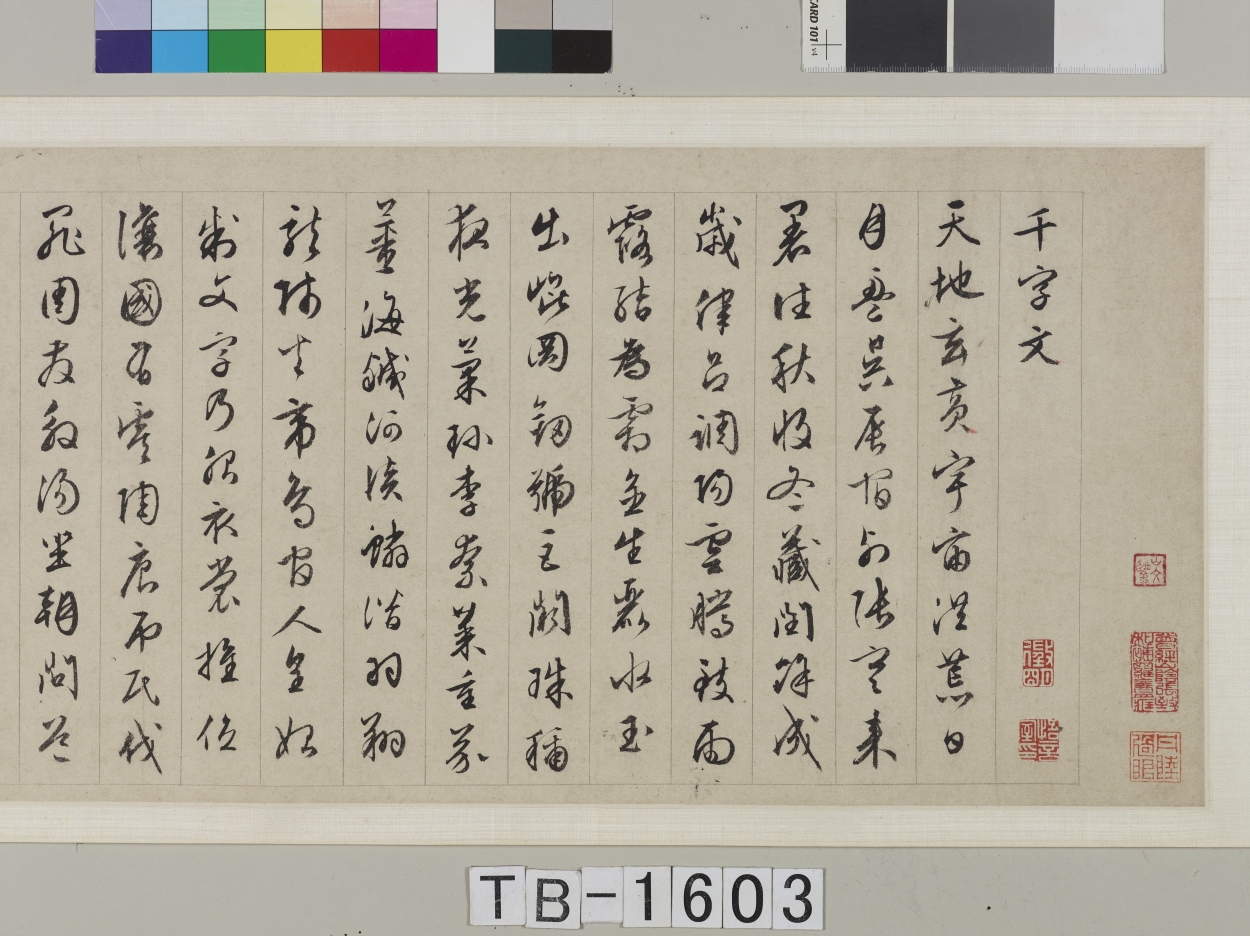 千字文
天地玄黃宇宙洪荒日
月盈昃辰宿列張寒來
暑往秋收冬藏閏餘成
歲律呂調陽雲騰致雨
露結為霜金生麗水玉
出崑岡劍號巨闕珠稱
夜光菓珍李柰菜重芥
薑海鹹河淡鱗潛羽翔
龍師火帝鳥官人皇始
制文字乃服衣裳推位
讓國有虞陶唐弔民伐
罪周發殷湯坐朝問道
CARD 101 v4
TB-1603